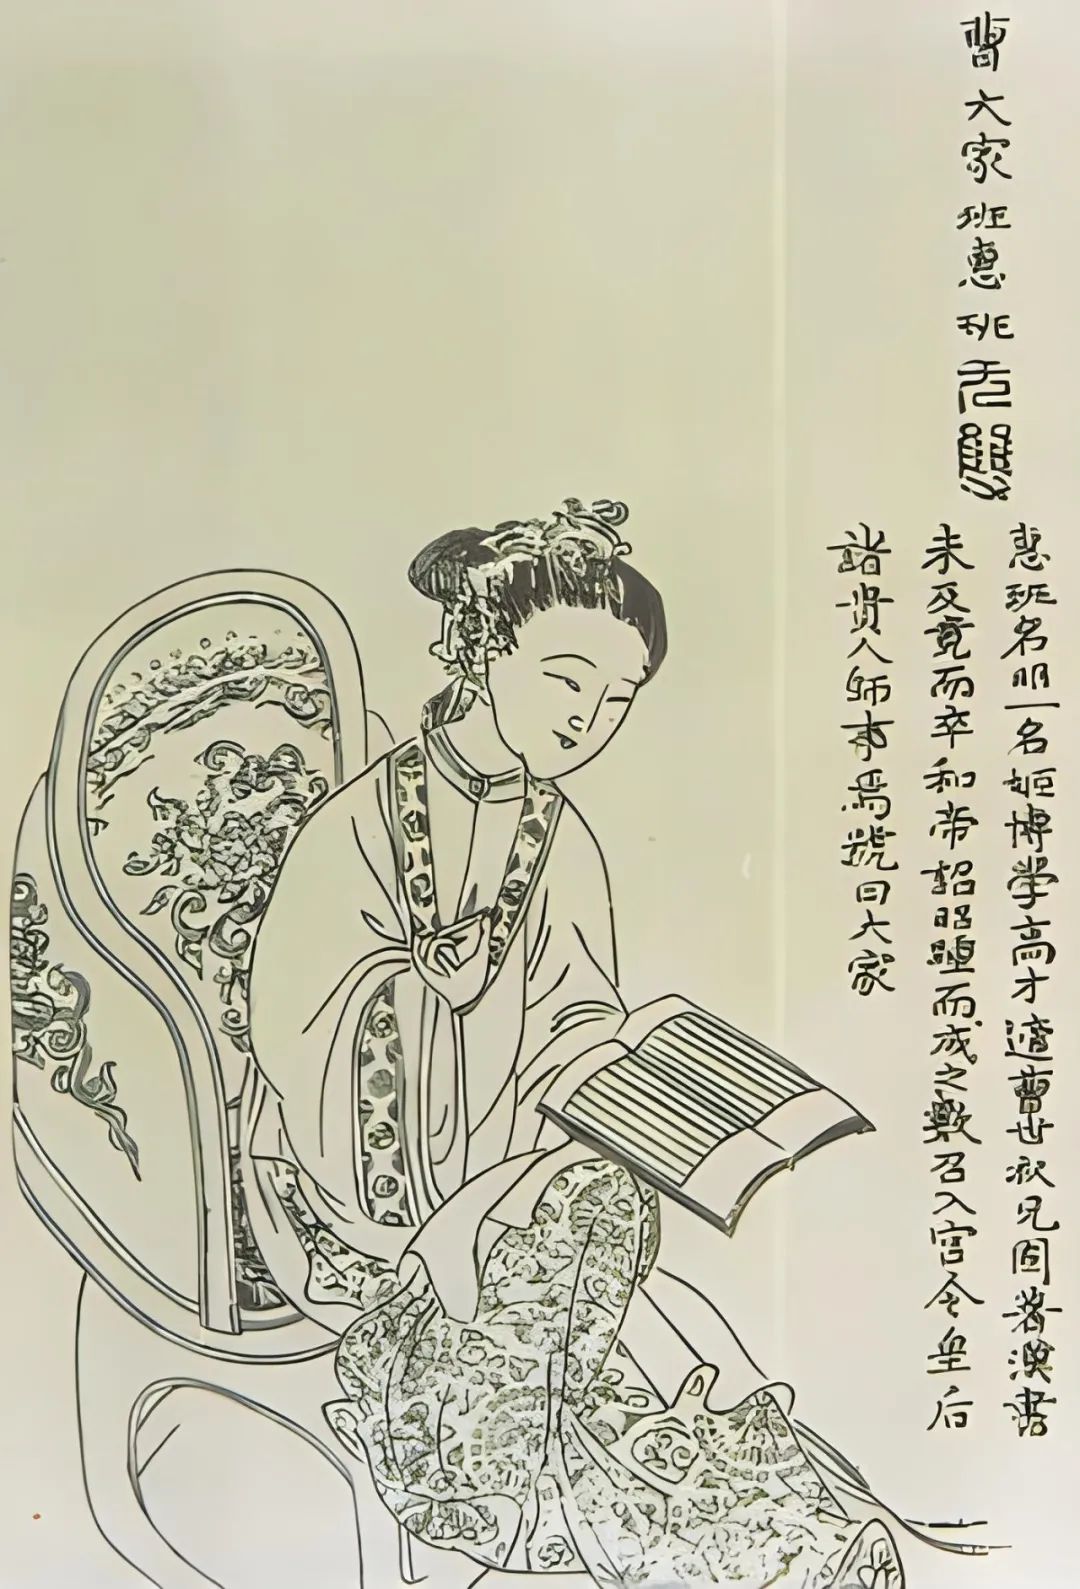 曹大家班惠班无雙
惠班名昭一名姬博學高才適曹世叔兄固著漢書
未及竟而卒和帝詔昭踵而成之數召入宮令皇后
諸貴人師事焉號曰大家